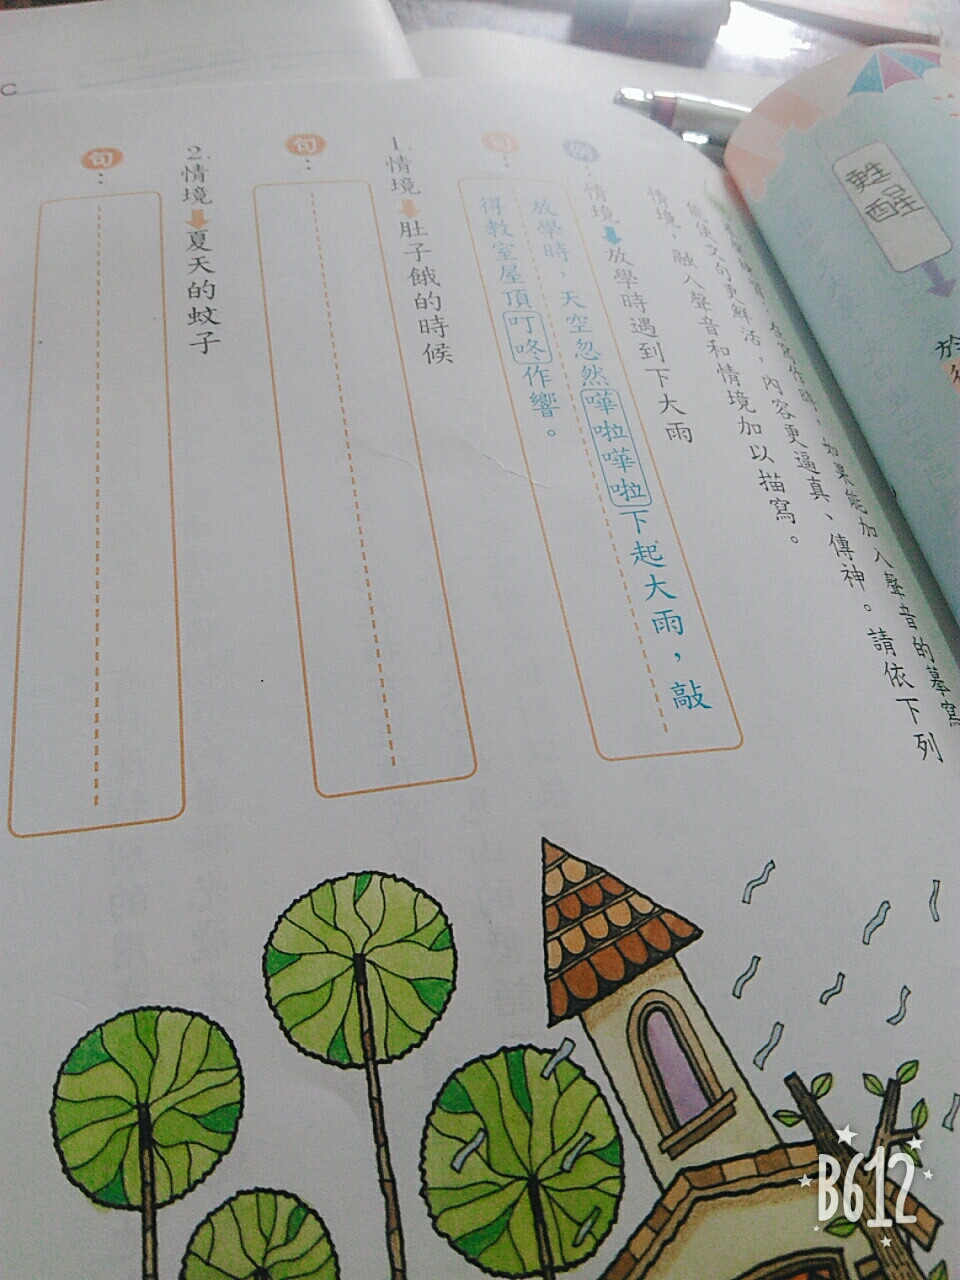 甦醒
在寫作時，如果能加入聲音的摹寫
能使文句更鮮活，內容更逼真、傳神。請依下列
情境，融入聲音和情境加以描寫。
例：情境➡放學時遇到下大雨
句：放學時，天空忽然嘩啦嘩啦下起大雨，敲
得教室屋頂叮咚作響。
1.情境➡肚子餓的時候
句：
2.情境➡夏天的蚊子
句：
B612